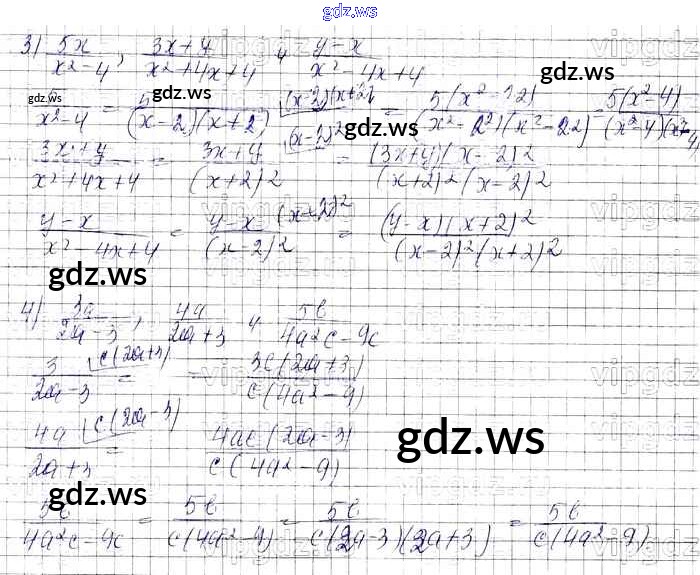 gdz.ws
3) 5x/(x²-4), (3x+4)/(x²+4x+4) и (y-x)/(x²-4x+4)
gdz.ws
5/(x²-4) = 5/((x-2)(x+2)) (x-2)(x+2)/(x-2)² = 5(x²-22)/((x²-22)(x²-22)) 5(x²-4)/((x²-4)(x²-4))
gdz.ws
gdz.ws
(3x+y)/(x²+4x+4) = (3x+y)/(x+2)2 = (3x+y)(x-2)2/((x+2)2(x-2)2)
(y-x)/(x²-4x+4) = (y-x)/(x-2)2 (x+2)2 = (y-x)(x+2)2/((x-2)2(x+2)2)
gdz.ws
4) 3a/(2a-3), 4a/(2a+3) и 5b/(4a²c-9c)
3/(2a-3) c(2a+3) = = 3c(2a+3)/(c(4a²-9))
4a/(2a+3) c(2a-3) = 4ac(2a-3)/(c(4a²-9))
gdz.ws
gdz.ws
5b/(4a²c-9c) = 5b/(c(4a²-9)) = 5b/(c(2a-3)(2a+3)) = 5b/(c(4a²-9))
gdz.ws